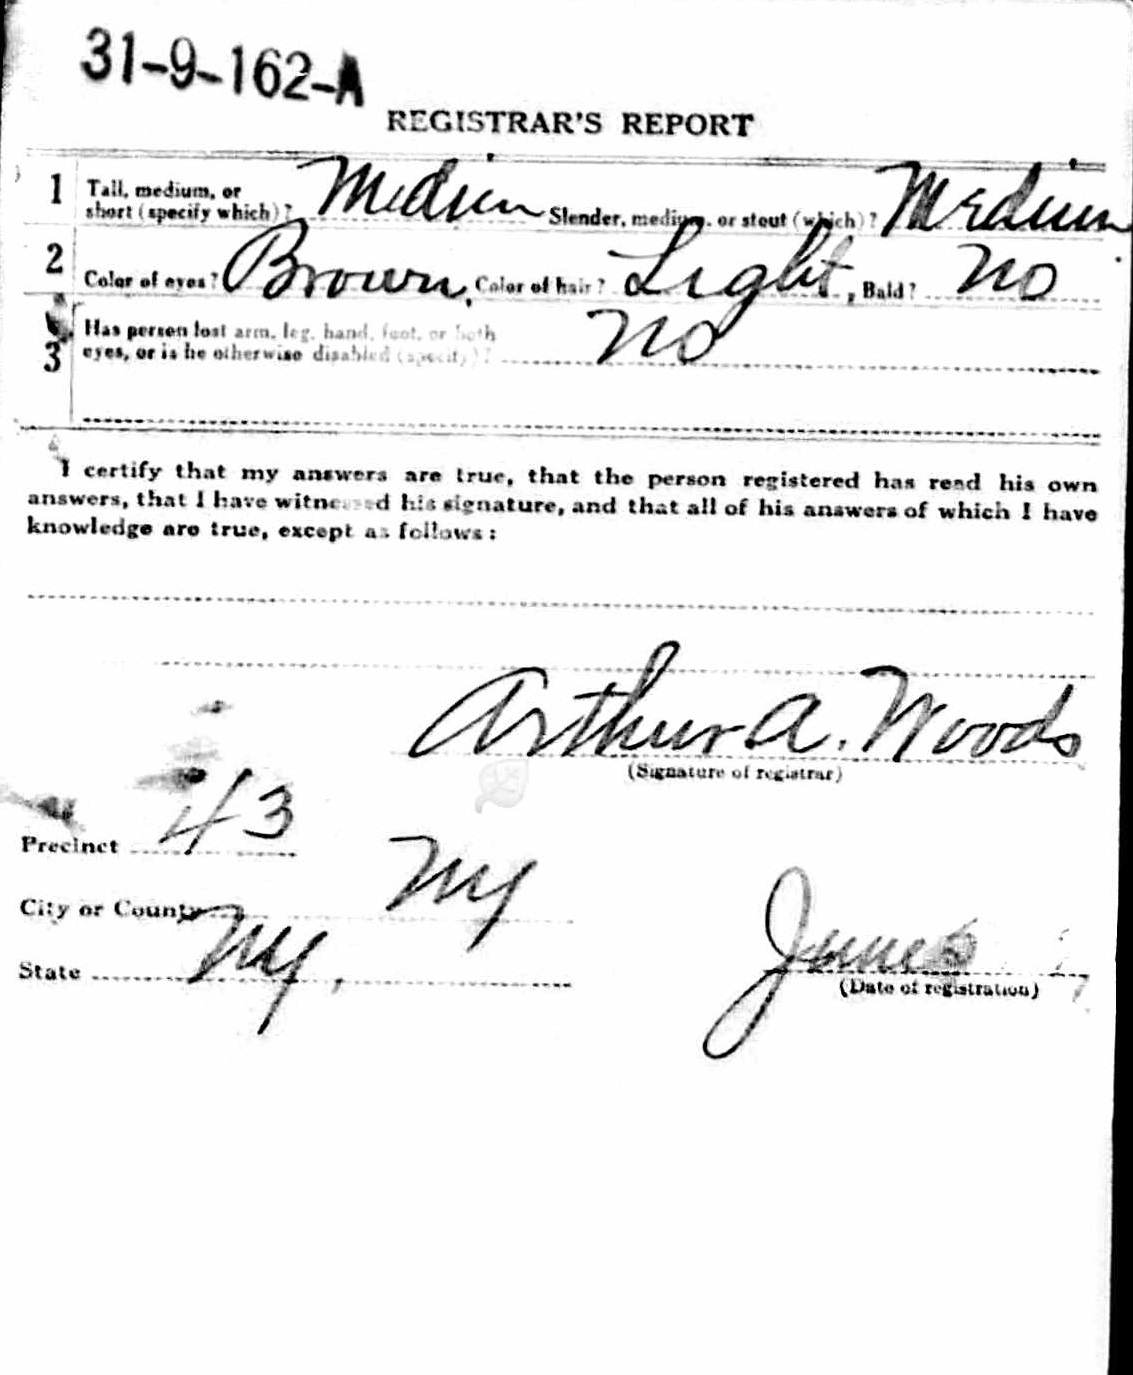 31-9-162-A
REGISTRAR'S REPORT
1 Tall, medium, or short (specify which)? Medium Slender, medium, or stout (which)? Medium
2 Color of eyes? Brown Color of hair? Light, Bald? No
3 Has person lost arm, leg, hand, foot, or both
eyes, or is he otherwise disabled (specify)? No
I certify that my answers are true, that the person registered has read his own
answers, that I have witnessed his signature, and that all of his answers of which I have
knowledge are true, except as follows:
Arthur A. Woods
(Signature of registrar)
Precinct 43
City or County NY
State NY,
June 5
(Date of registration)